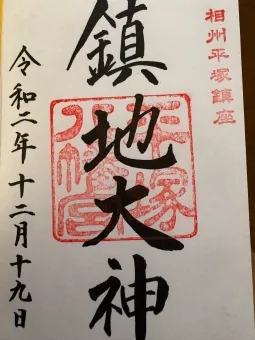 相州平塚鎮座
鎮地大神
平塚八幡宮
令和二年十二月十九日